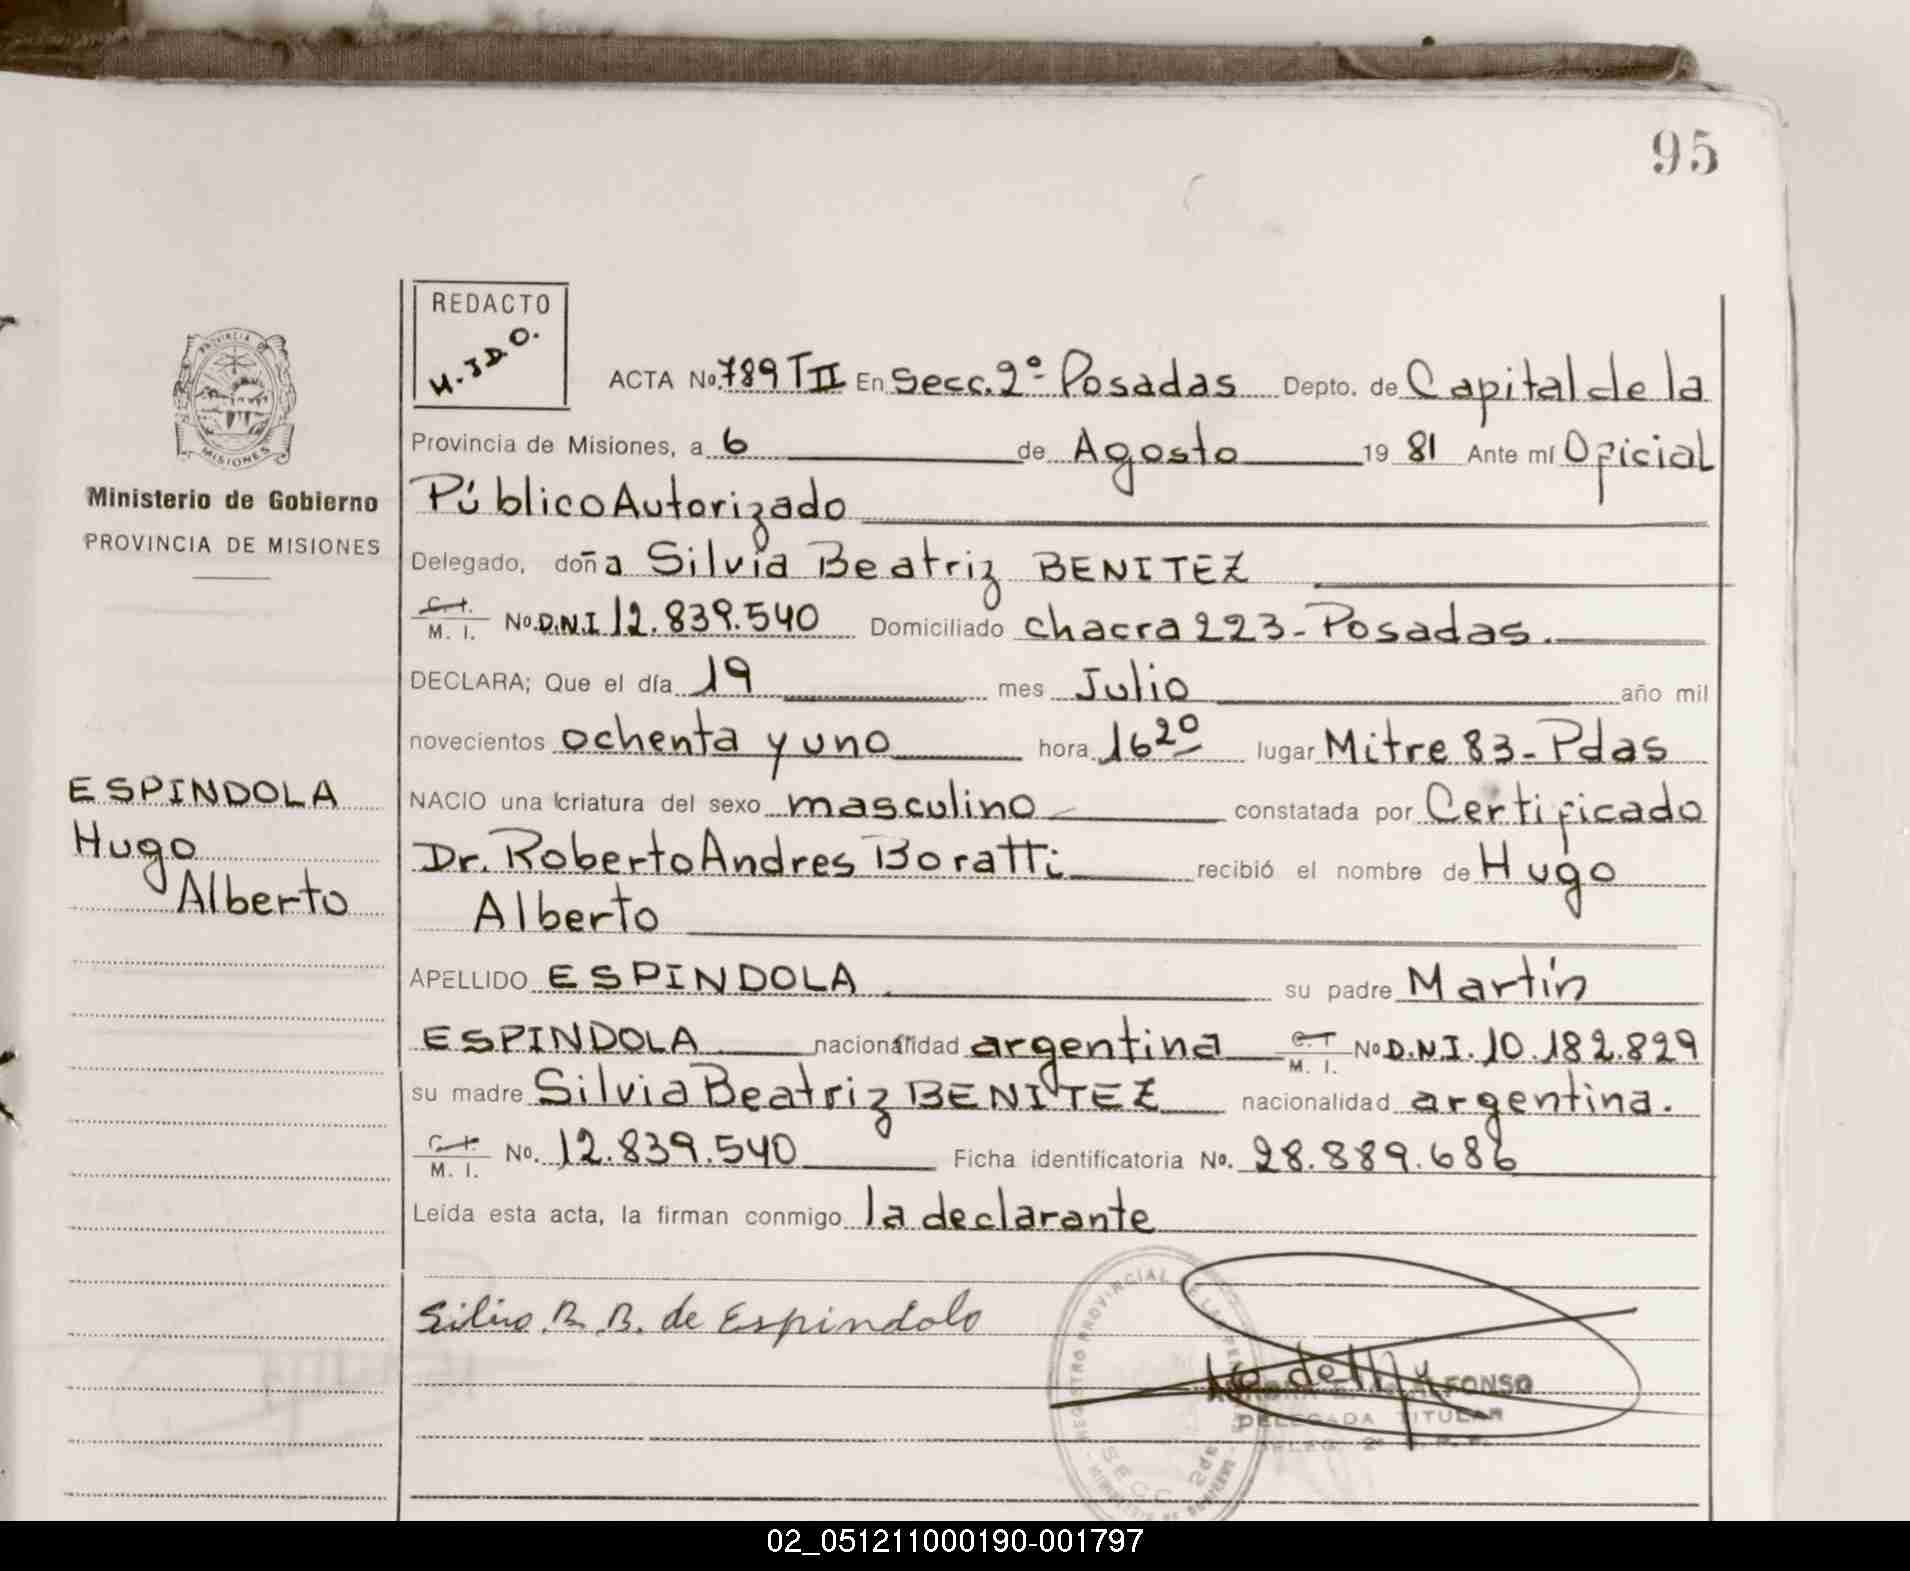 95
REDACTO
H.J.D.O.
PROVINCIA DE
MISIONES
Ministerio de Gobierno
PROVINCIA DE MISIONES
ESPINDOLA
Hugo
Alberto
ACTA No. 789 TII En Secc. 2º Posadas Depto. de Capital de la
Provincia de Misiones, a 6 de Agosto 19 81 Ante mí Oficial
Público Autorizado
Delegado, doña Silvia Beatriz BENITEZ
C.I. / M. I. No. D.N.I 12.839.540 Domiciliado chacra 223-Posadas.
DECLARA; Que el día 19 mes Julio año mil
novecientos ochenta y uno hora 16 20 lugar Mitre 83-Pdas
NACIO una criatura del sexo masculino constatada por Certificado
Dr. Roberto Andres Boratti recibió el nombre de Hugo
Alberto
APELLIDO ESPINDOLA su padre Martín
ESPINDOLA nacionalidad argentina C.I / M. I. No D.N.I. 10.182.829
su madre Silvia Beatriz BENITEZ nacionalidad argentina.
C.I. / M. I. No. 12.839.540 Ficha identificatoria No. 28.889.686
Leída esta acta, la firman conmigo la declarante
Silvia B. B. de Espindola
ALFONSO
DELEGADA TITULAR
REGISTRO PROVINCIAL DE LAS
SECC
02_051211000190-001797